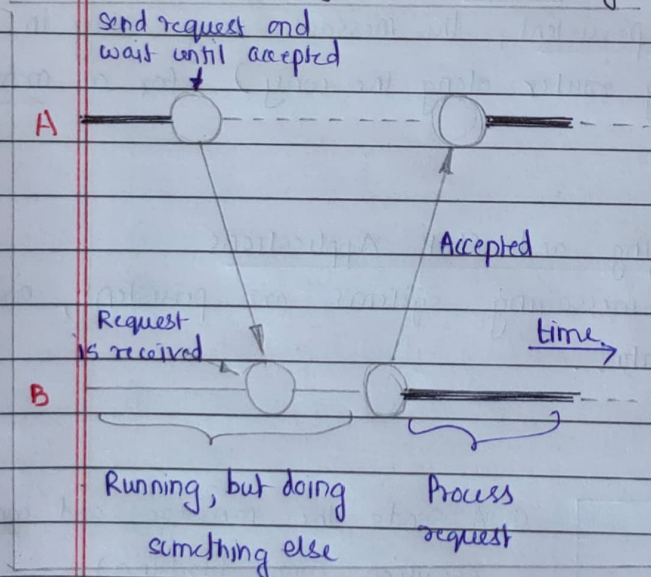 Send request and
wait until accepted
A
Accepted
Request
is received
time
B
Running, but doing
something else
Process
request